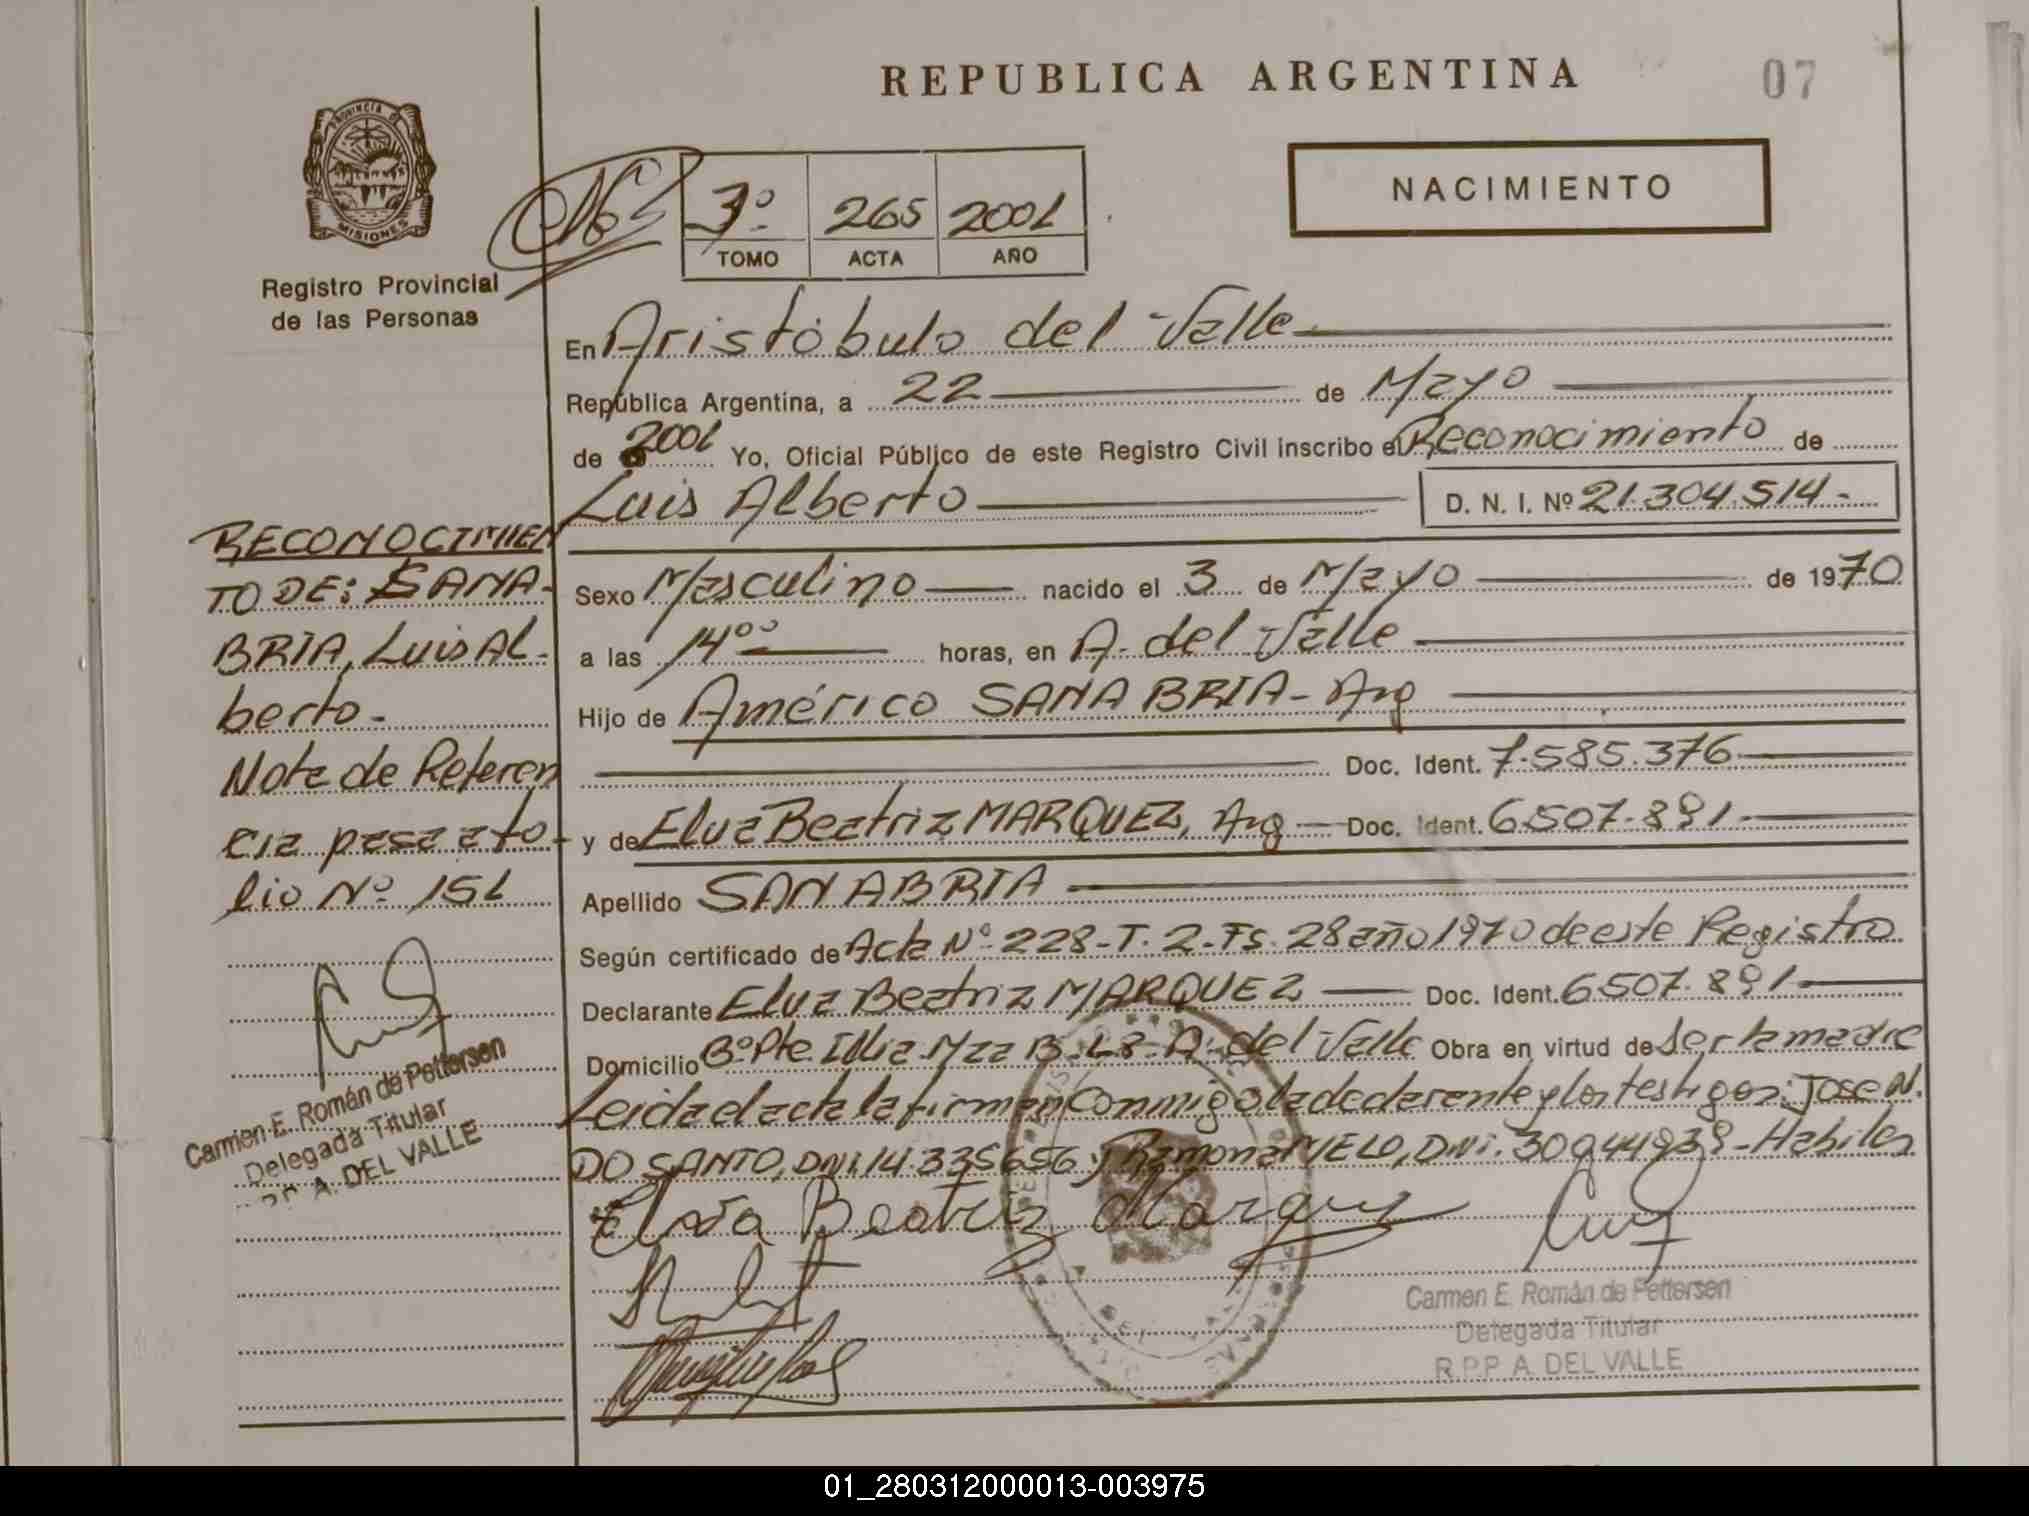 REPUBLICA ARGENTINA
07
PROVINCIA DE
MISIONES
Registro Provincial
de las Personas
3º 265 2001
TOMO ACTA AÑO
NACIMIENTO
En Aristóbulo del Valle
República Argentina, a 22 de Mayo
de 2001 Yo, Oficial Público de este Registro Civil inscribo el Reconocimiento de
Luis Alberto D. N. I. Nº 21.304.514-
Sexo Masculino nacido el 3 de Mayo de 1970
a las 14ºº horas, en A. del Valle
Hijo de Américo SANABRIA - Arg
Doc. Ident. 7.585.376
y de Elva Beatriz MARQUEZ, Arg Doc. Ident. 6.507.891
Apellido SANABRIA
Según certificado de Acta Nº 228-T. 2-Fs. 28 año 1970 de este Registro
Declarante Elva Beatriz MARQUEZ Doc. Ident. 6507.891
Domicilio Bº Pte. Illia Mza B-L8-A. del Valle Obra en virtud de ser la madre
Leida el acta la firman conmigo la declarante y los testigos: Jose N.
DO SANTO, DNi. 14.335656 y Ramona MELO, DNi. 30944938 - Habiles
Elva Beatriz Marquez
Carmen E. Román de Pettersen
Delegada Titular
R.P.P. A. DEL VALLE
RECONOCIMIEN
TO DE: SANA-
BRIA, Luis Al-
berto-
Nota de Referen
cia pasa a fo-
lio Nº 151
Carmen E. Román de Pettersen
Delegada Titular
A. DEL VALLE
01_280312000013-003975